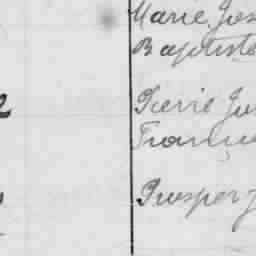 Marie Jos
Baptiste
2 Pierre Ju
Franço
Prosper J